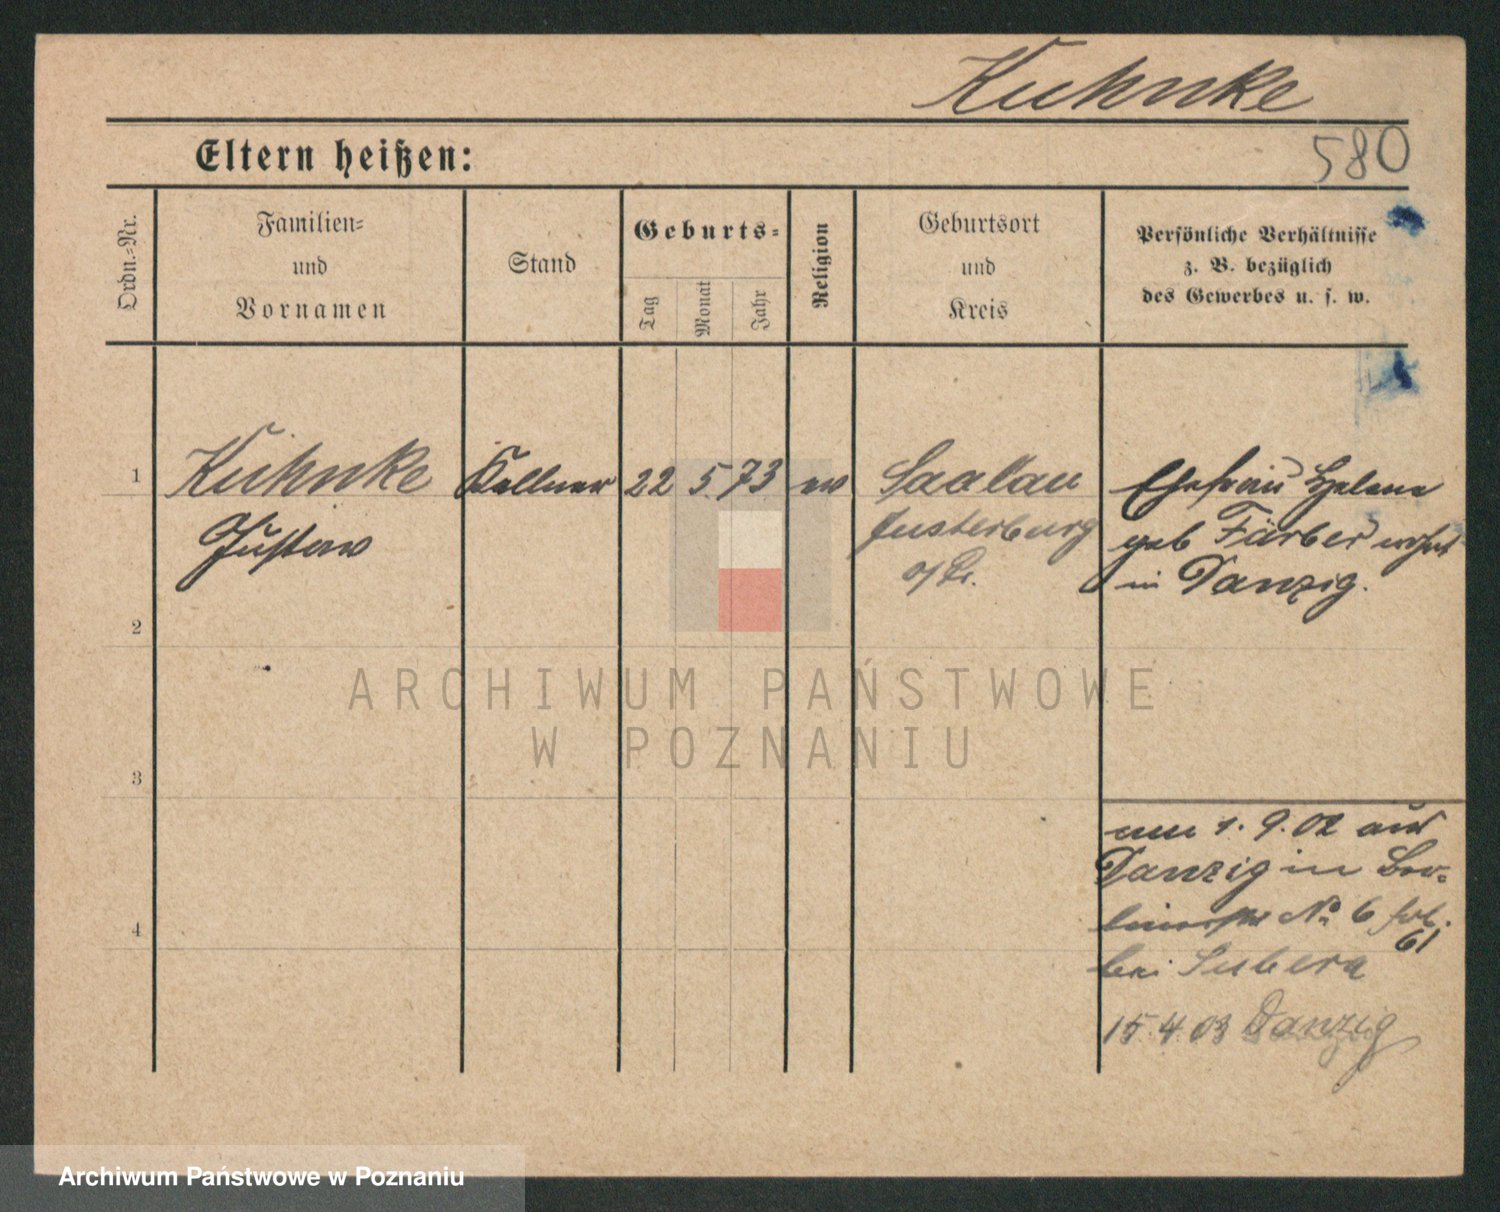 Kuhnke
Eltern heißen:
580
Ordn.-Nr.
Familien-
und
Vornamen
Stand
Geburts-
Tag
Monat
Jahr
Religion
Geburtsort
und
Kreis
Persönliche Verhältnisse
z. B. bezüglich
des Gewerbes u. s. w.
1
Kuhnke
Gustav
Kellner
22 5 73
ev
Saalau
Insterburg
o/Pr.
Ehefrau Helene
geb Färber wohnt
in Danzig.
2
3
4
1. 9. 02 aus
Danzig in Ber-
linerstr No 6
61
bei
15. 4. 03 Danzig
ARCHIWUM PAŃSTWOWE
W POZNANIU
Archiwum Państwowe w Poznaniu